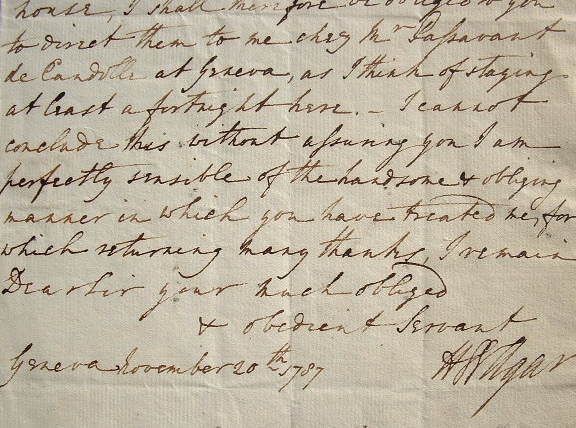 house, I shall therefore be obliged to you
to direct them to me chez Mr. Passavant
de Candolle at Geneva, as I think of staying
at least a fortnight here. – I cannot
conclude this without assuring you I am
perfectly sensible of the handsome & obliging
manner in which you have treated me, for
which returning many thanks, I remain
Dear Sir your much obliged
& obedient Servant
Geneva November 20th 1787